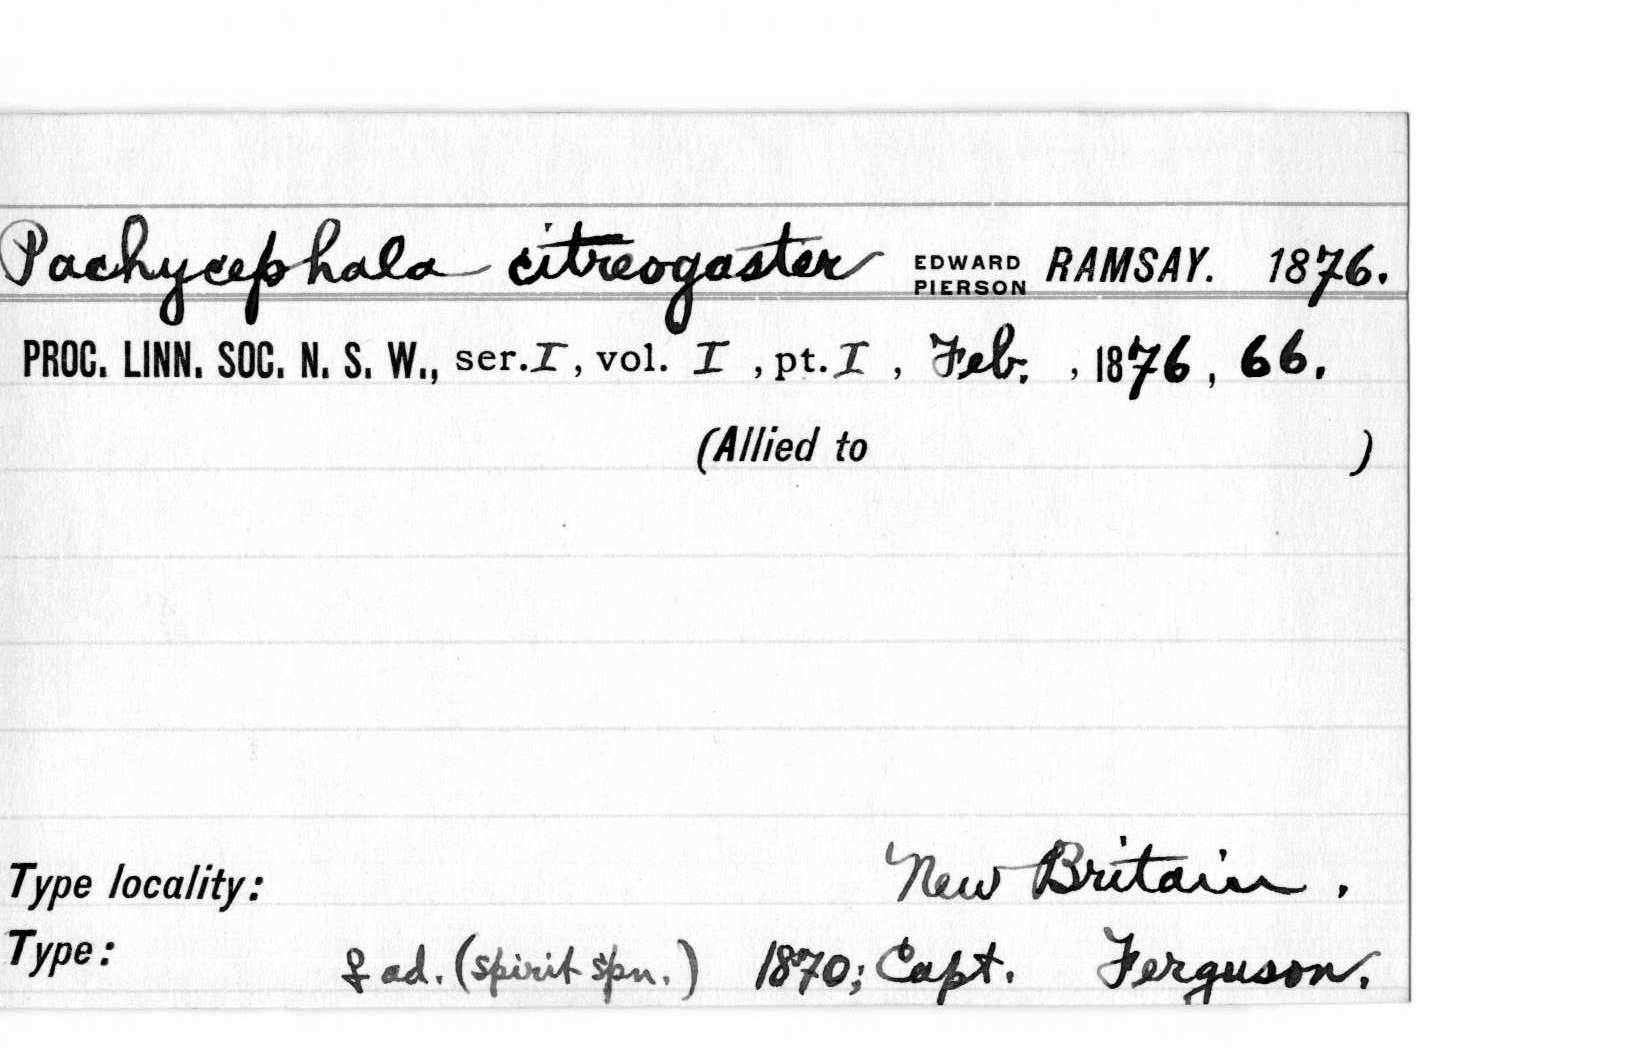 Pachycephala citreogaster EDWARD PIERSON RAMSAY. 1876.
PROC. LINN. SOC. N. S. W., ser. I, vol. I, pt. I, Feb., 1876, 66.
(Allied to )
Type locality: New Britain.
Type: ♀ ad. (spirit spn.) 1870; Capt. Ferguson.